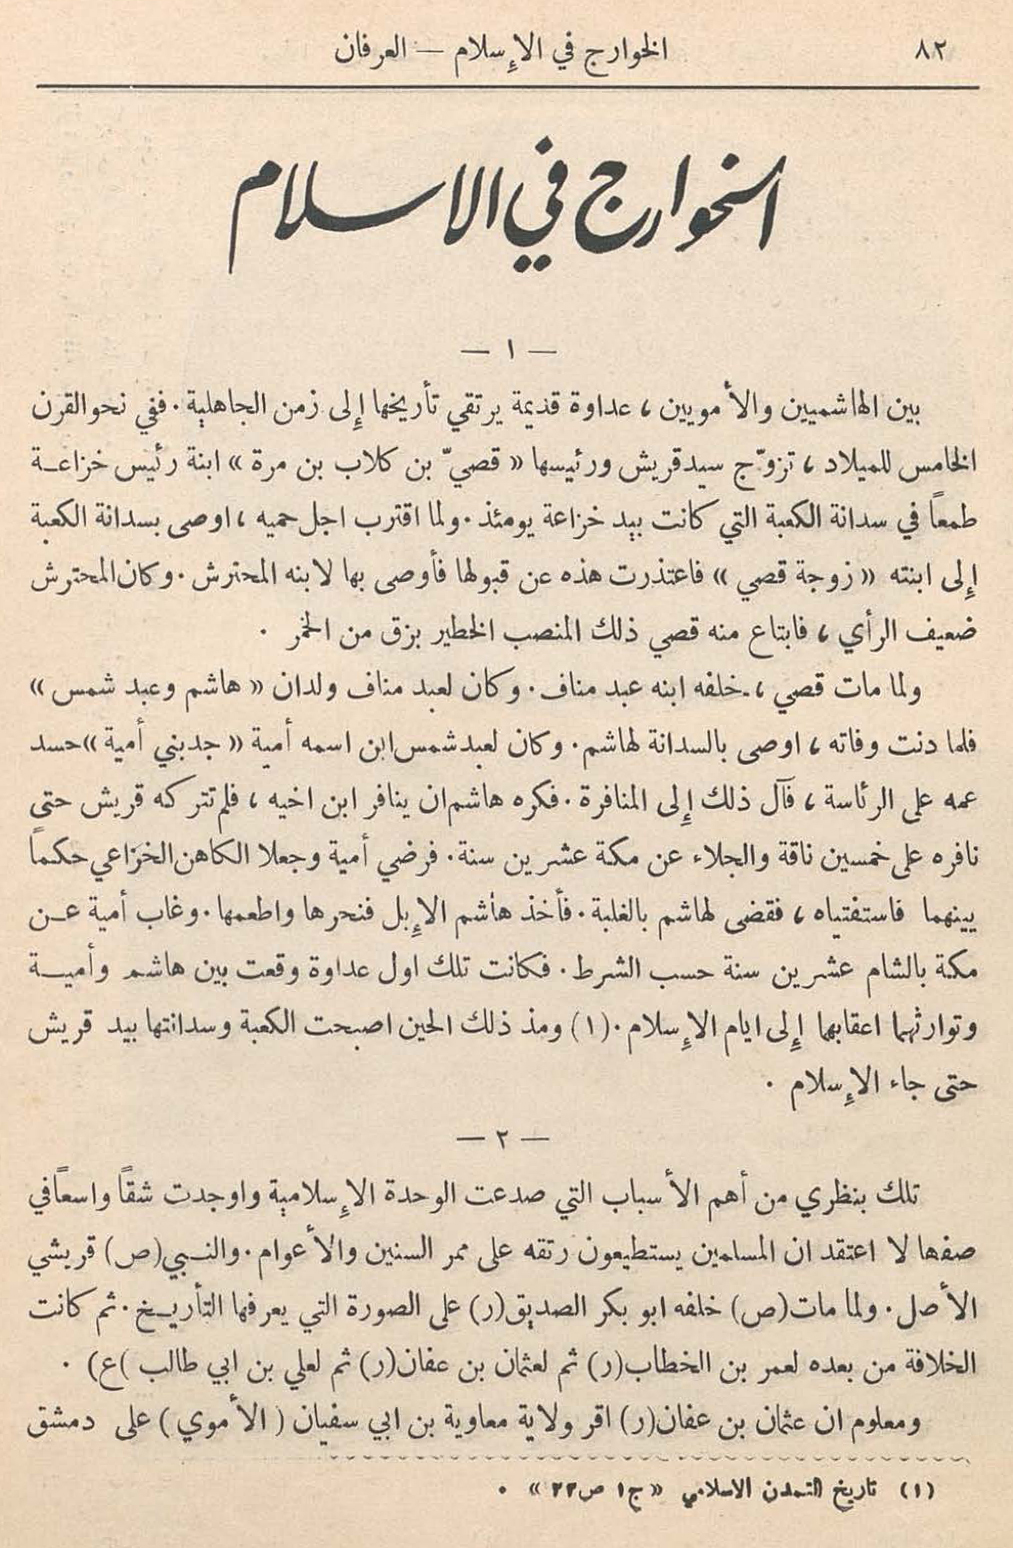 ٨٢
الخوارج في الإسلام — العرفان
الخوارج في الاسلام
— ١ —
بين الهاشميين والأمويين ، عداوة قديمة يرتقي تأريخها إلى زمن الجاهلية . ففي نحو القرن
الخامس للميلاد ، تزوّج سيد قريش ورئيسها « قصيّ بن كلاب بن مرة » ابنة رئيس خزاعـة
طمعاً في سدانة الكعبة التي كانت بيد خزاعة يومئذ . ولما اقترب اجل حميه ، اوصى بسدانة الكعبة
إلى ابنته « زوجة قصي » فاعتذرت هذه عن قبولها فأوصى بها لابنه المحترش . وكان المحترش
ضعيف الرأي ، فابتاع منه قصي ذلك المنصب الخطير بزق من الخمر .
ولما مات قصي ، خلفه ابنه عبد مناف . وكان لعبد مناف ولدان « هاشم وعبد شمس »
فلما دنت وفاته ، اوصى بالسدانة لهاشم . وكان لعبد شمس ابن اسمه أمية « جد بني أمية » حسد
عمه على الرئاسة ، فآل ذلك إلى المنافرة . فكره هاشم ان ينافر ابن اخيه ، فلم تتركه قريش حتى
نافره على خمسين ناقة والجلاء عن مكة عشرين سنة . فرضي أمية وجعلا الكاهن الخزاعي حكماً
بينهما فاستفتياه ، فقضى لهاشم بالغلبة . فأخذ هاشم الإبل فنحرها واطعمها . وغاب أمية عـن
مكة بالشام عشرين سنة حسب الشرط . فكانت تلك اول عداوة وقعت بين هاشم وأميـة
وتوارثهما اعقابهما إلى ايام الإسلام . (١) ومذ ذلك الحين اصبحت الكعبة وسدانتها بيد قريش
حتى جاء الإسلام .
— ٢ —
تلك بنظري من أهم الأسباب التي صدعت الوحدة الإسلامية واوجدت شقاً واسعاً في
صفها لا اعتقد ان المسلمين يستطيعون رتقه على ممر السنين والأعوام . والنـبي (ص) قريشي
الأصل . ولما مات (ص) خلفه ابو بكر الصديق (ر) على الصورة التي يعرفها التأريـخ . ثم كانت
الخلافة من بعده لعمر بن الخطاب (ر) ثم لعثمان بن عفان (ر) ثم لعلي بن ابي طالب )ع) .
ومعلوم ان عثمان بن عفان (ر) اقر ولاية معاوية بن ابي سفيان ( الأموي ) على دمشق
(١) تاريخ التمدن الاسلامي « ج١ ص٢٢ » .